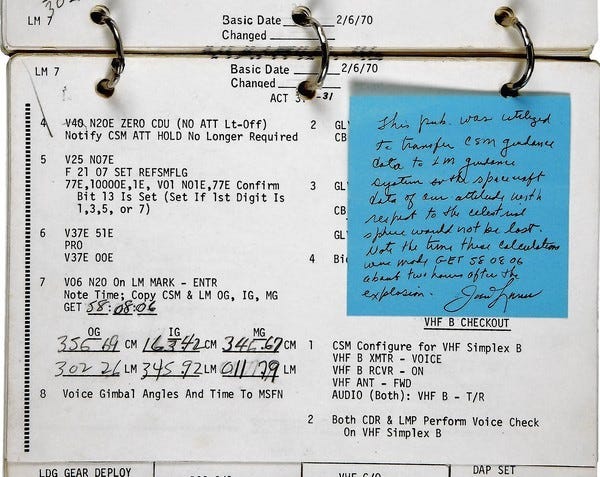 LM 7
Basic Date 2/6/70
Changed
LM 7
Basic Date 2/6/70
Changed
ACT 31
4 V40 N20E ZERO CDU (NO ATT Lt-Off)
Notify CSM ATT HOLD No Longer Required
5 V25 N07E
F 21 07 SET REFSMFLG
77E,10000E,1E, V01 N01E,77E Confirm
Bit 13 Is Set (Set If 1st Digit Is
1,3,5, or 7)
6 V37E 51E
PRO
V37E 00E
7 V06 N20 On LM MARK - ENTR
Note Time; Copy CSM & LM OG, IG, MG
GET 58:08:06
OG IG MG
CM 163 42 CM 346.67 CM
302 26 LM 345 92 LM 011 79 LM
8 Voice Gimbal Angles And Time To MSFN
2 GLY
CB
3 GL
CB
4 Bi
This pub. was utilized
to transfer CSM guidance
data to LM guidance
system so the spacecraft
data of our attitude with
respect to the celestial
sphere would not be lost.
Note the time these calculations
were made GET 58 08 06
about two hours after the
explosion.
VHF B CHECKOUT
1 CSM Configure for VHF Simplex B
VHF B XMTR - VOICE
VHF B RCVR - ON
VHF ANT - FWD
AUDIO (Both): VHF B - T/R
2 Both CDR & LMP Perform Voice Check
On VHF Simplex B
LDG GEAR DEPLOY
VHF C/O
DAP SET